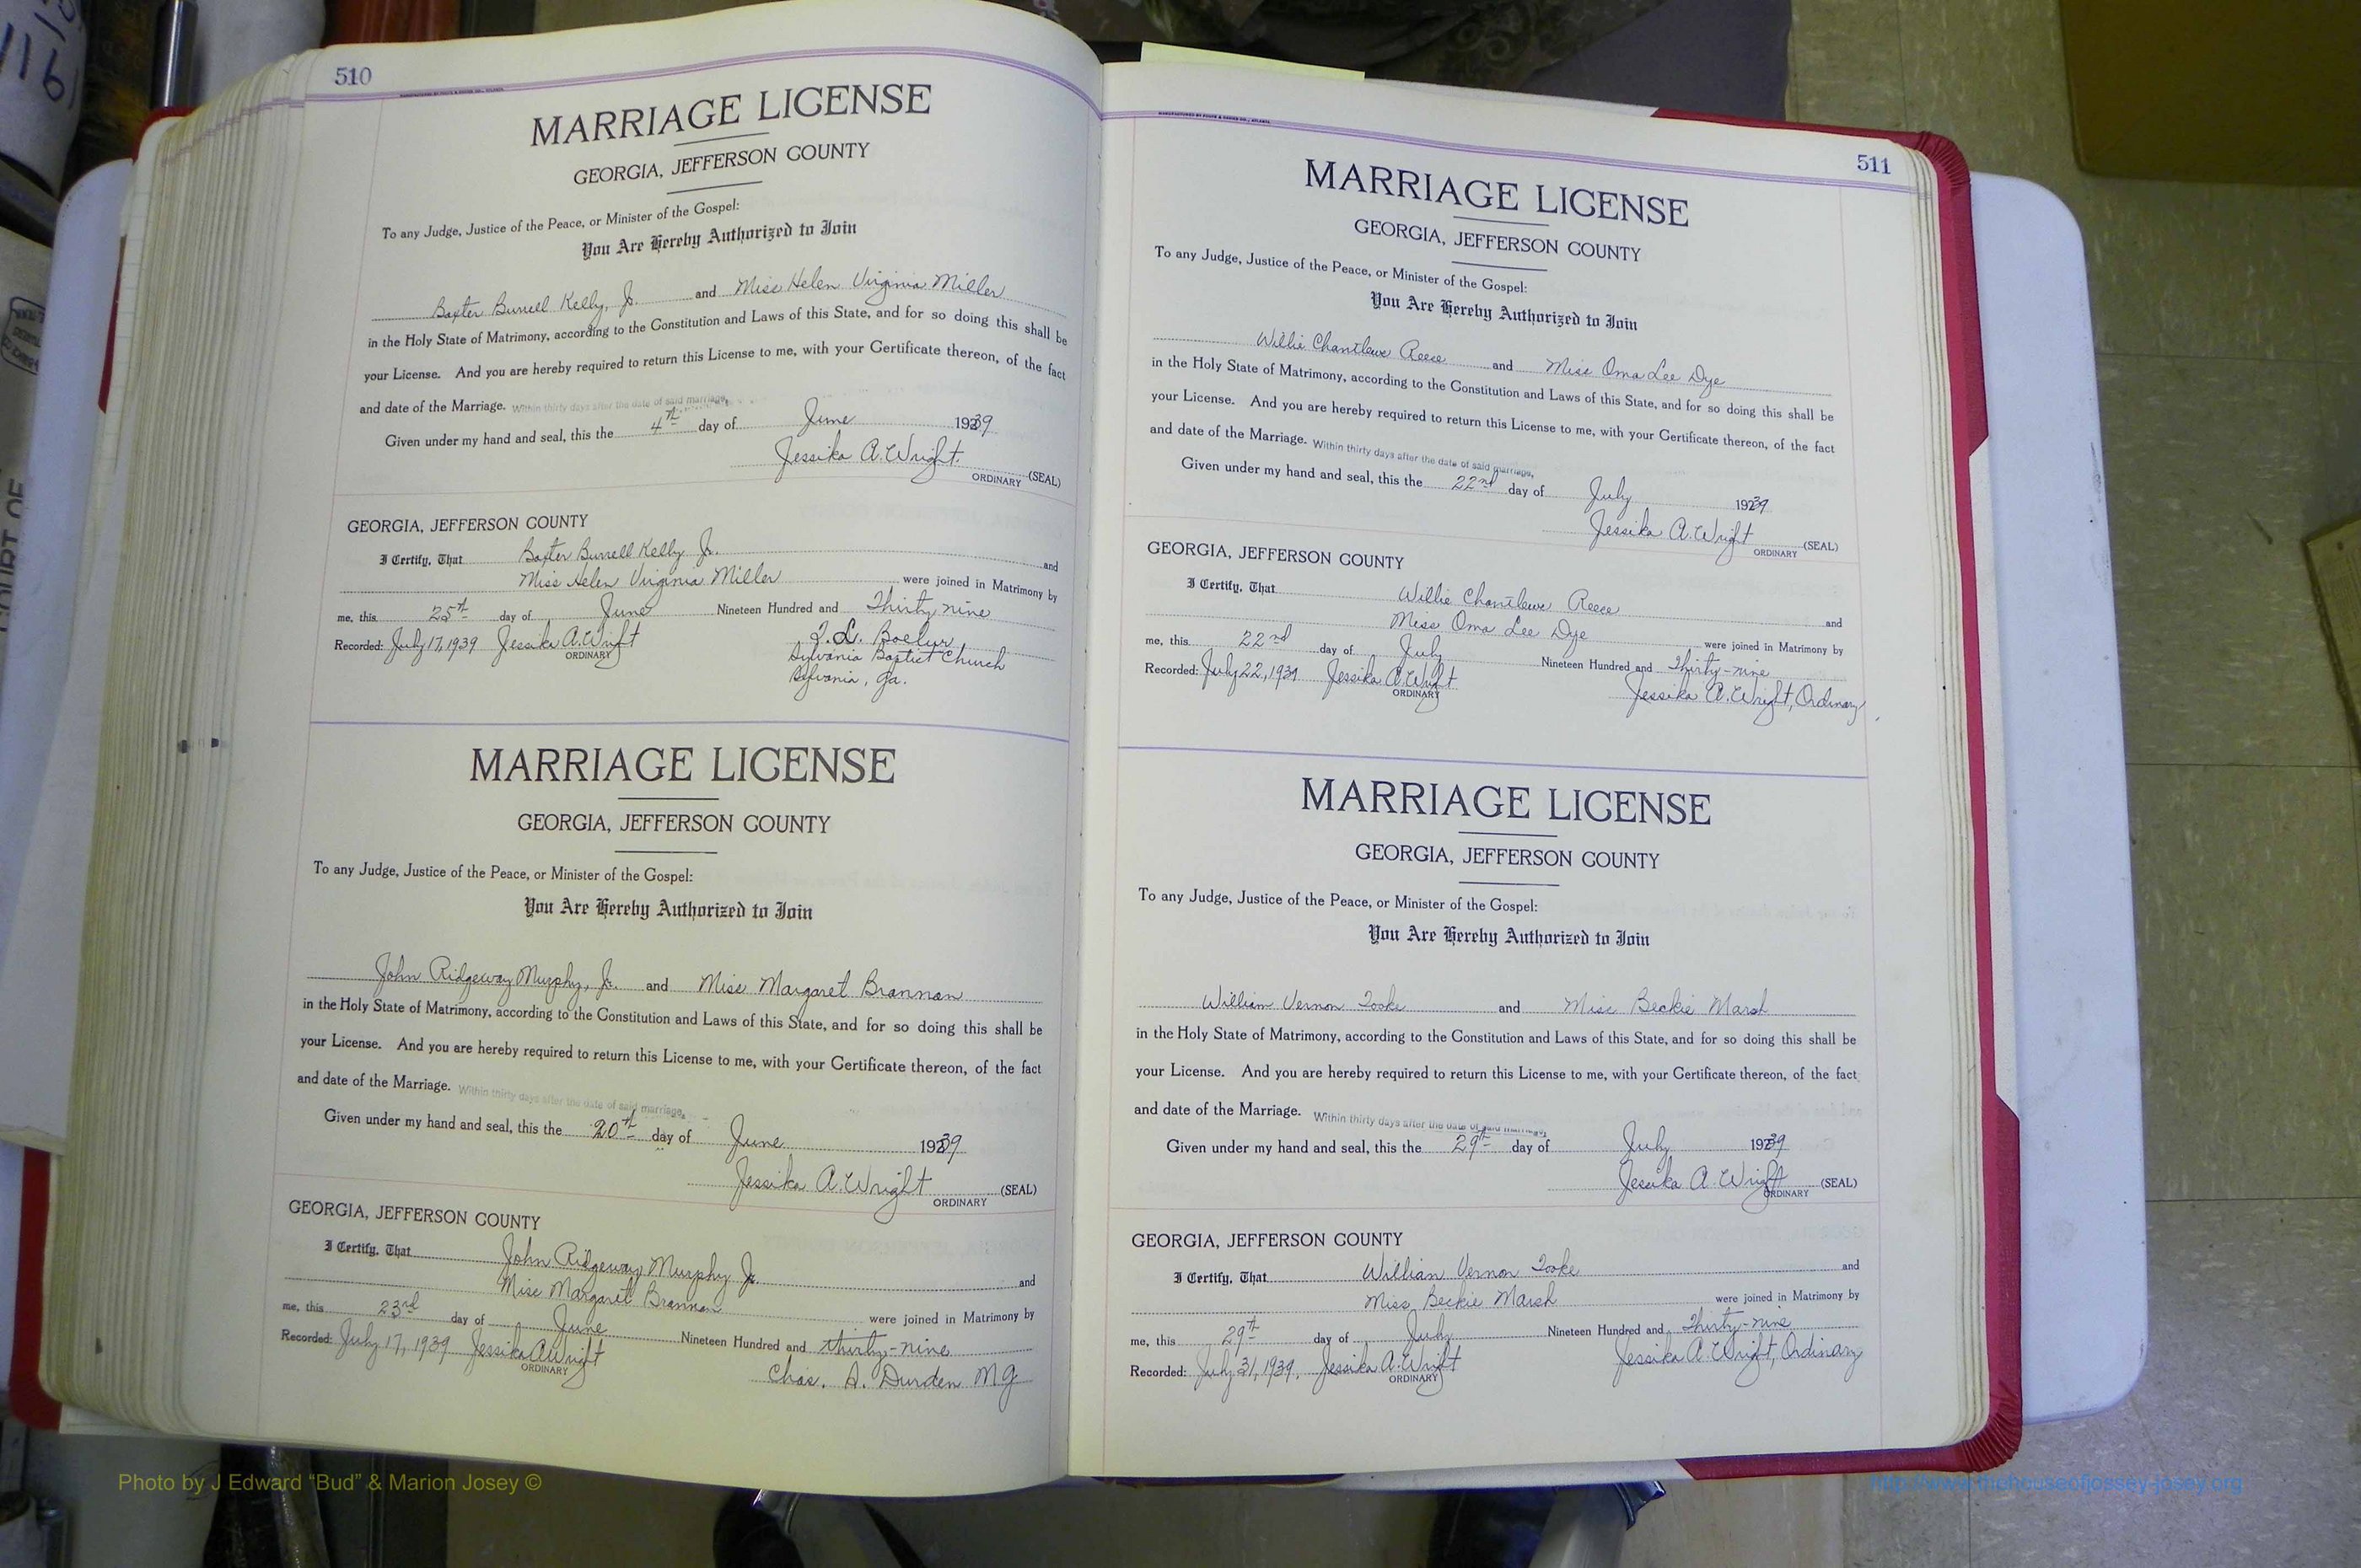 510
MANUFACTURED BY FOOTE & DAVIES CO., ATLANTA
MARRIAGE LICENSE
GEORGIA, JEFFERSON COUNTY
To any Judge, Justice of the Peace, or Minister of the Gospel:
You Are Hereby Authorized to Join
Baxter Burrell Kelly, Jr. and Miss Helen Virginia Miller
in the Holy State of Matrimony, according to the Constitution and Laws of this State, and for so doing this shall be
your License. And you are hereby required to return this License to me, with your Certificate thereon, of the fact
and date of the Marriage. Within thirty days after the date of said marriage,
Given under my hand and seal, this the 4th day of June 1939
Jessika A. Wright (SEAL)
ORDINARY
GEORGIA, JEFFERSON COUNTY
I Certify, That Baxter Burrell Kelly Jr. and
Miss Helen Virginia Miller were joined in Matrimony by
me, this 25th day of June Nineteen Hundred and Thirty nine
Recorded: July 17, 1939 Jessika A. Wright
ORDINARY
Sylvania Baptist Church
Sylvania, Ga.
MARRIAGE LICENSE
GEORGIA, JEFFERSON COUNTY
To any Judge, Justice of the Peace, or Minister of the Gospel:
You Are Hereby Authorized to Join
John Ridgeway Murphy, Jr. and Miss Margaret Brannan
in the Holy State of Matrimony, according to the Constitution and Laws of this State, and for so doing this shall be
your License. And you are hereby required to return this License to me, with your Certificate thereon, of the fact
and date of the Marriage. Within thirty days after the date of said marriage,
Given under my hand and seal, this the 20th day of June 1939
Jessika A. Wright (SEAL)
ORDINARY
GEORGIA, JEFFERSON COUNTY
I Certify, That John Ridgeway Murphy Jr. and
Miss Margaret Brannan were joined in Matrimony by
me, this 23rd day of June Nineteen Hundred and thirty-nine
Recorded: July 17, 1939 Jessika A. Wright
ORDINARY
Chas. A. Durden M G
511
MANUFACTURED BY FOOTE & DAVIES CO., ATLANTA
MARRIAGE LICENSE
GEORGIA, JEFFERSON COUNTY
To any Judge, Justice of the Peace, or Minister of the Gospel:
You Are Hereby Authorized to Join
Willie Reese and Miss Oma Lee Dye
in the Holy State of Matrimony, according to the Constitution and Laws of this State, and for so doing this shall be
your License. And you are hereby required to return this License to me, with your Certificate thereon, of the fact
and date of the Marriage. Within thirty days after the date of said marriage,
Given under my hand and seal, this the 22nd day of July 1939
Jessika A. Wright (SEAL)
ORDINARY
GEORGIA, JEFFERSON COUNTY
I Certify, That Willie Reese and
Miss Oma Lee Dye were joined in Matrimony by
me, this 22nd day of July Nineteen Hundred and Thirty-nine
Recorded: July 22, 1939 Jessika A. Wright
ORDINARY
Jessika A. Wright, Ordinary
MARRIAGE LICENSE
GEORGIA, JEFFERSON COUNTY
To any Judge, Justice of the Peace, or Minister of the Gospel:
You Are Hereby Authorized to Join
William Vernon Tooke and Miss Beckie Marsh
in the Holy State of Matrimony, according to the Constitution and Laws of this State, and for so doing this shall be
your License. And you are hereby required to return this License to me, with your Certificate thereon, of the fact
and date of the Marriage. Within thirty days after the date of said marriage,
Given under my hand and seal, this the 29th day of July 1939
Jessika A. Wright (SEAL)
ORDINARY
GEORGIA, JEFFERSON COUNTY
I Certify, That Willian Vernon Tooke and
Miss Beckie Marsh were joined in Matrimony by
me, this 29th day of July Nineteen Hundred and Thirty-nine
Recorded: July 31, 1939. Jessika A. Wright
ORDINARY
Jessika A. Wright, Ordinary
Photo by J Edward “Bud” & Marion Josey ©
http://www.thehouseofjossey-josey.org